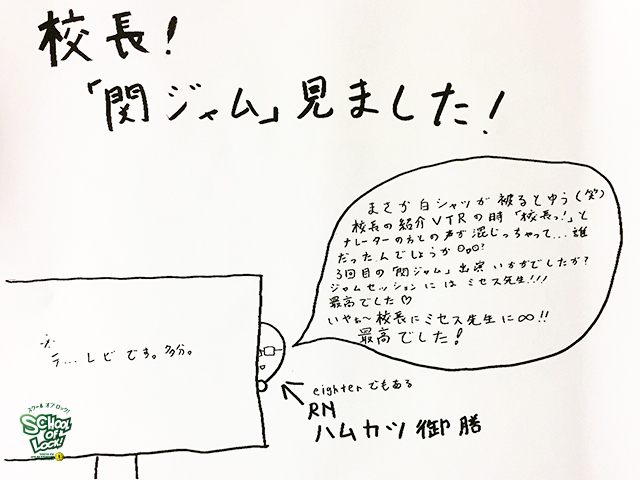 校長!
「関ジャム」見ました!
まさか白シャツが被るとゆう(笑)
校長の紹介VTRの時「校長っ!」と
ナレーターの方との声が混じっちゃって...誰
だったんでしょうか
3回目の「関ジャム」出演いかがでしたか?
ジャムセッションにはミセス先生!!!
最高でした♡
いやぁ〜校長にミセス先生に∞!!
最高でした!
※テ...レビです。多分。
eighterでもある
RN
ハムカツ御膳
スクールオブロック!
SCHOOL OF LOCK!